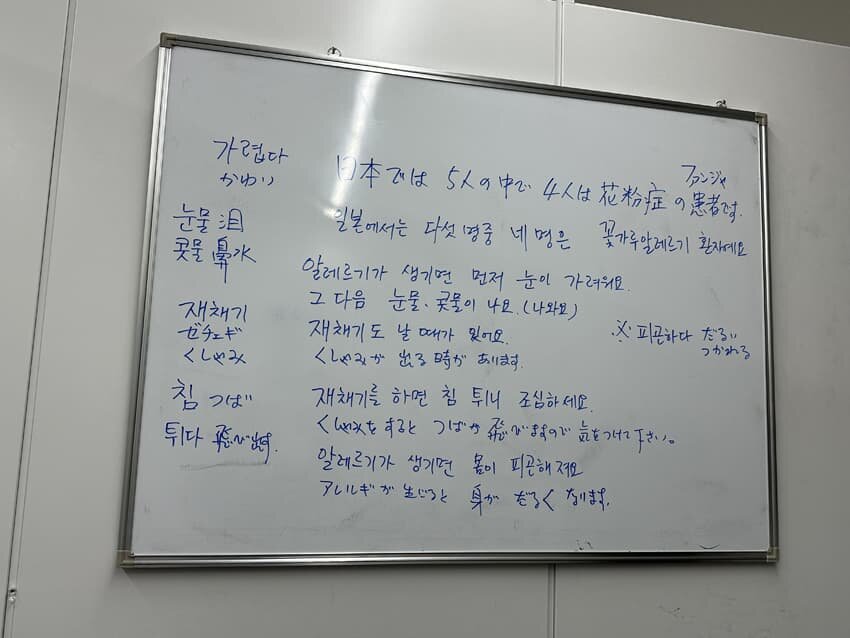 가렵다
かゆい
눈물 泪
콧물 鼻水
재채기
ゼチェギ
くしゃみ
침 つば
튀다 飛び出す.
ファンジャ
日本では 5人の中で 4人は 花粉症の患者です.
일본에서는 다섯 명중 네 명은 꽃가루알레르기 환자예요
알레르기가 생기면 먼저 눈이 가려워요.
그 다음 눈물、콧물이 나요.(나와요)
재채기도 날 때가 있어요.
くしゃみが 出る時が あります.
※ 피곤하다 だるい
つかれる
재채기를 하면 침 튀니 조심하세요.
くしゃみをすると つばが 飛びますので 気をつけて下さい。
알레르기가 생기면 몸이 피곤해져요
アレルギが生じると 身が だるく なります.